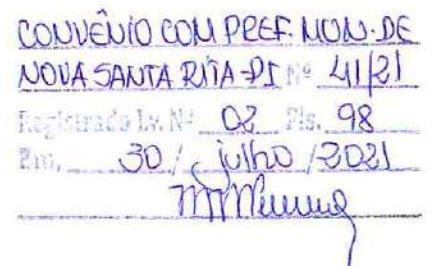 CONVÊNIO COM PREF. MUN. DE
NOVA SANTA RITA-PI Nº 41/21
Registrado Lv. Nº 02 Fls. 98
Em, 30 / julho / 2021